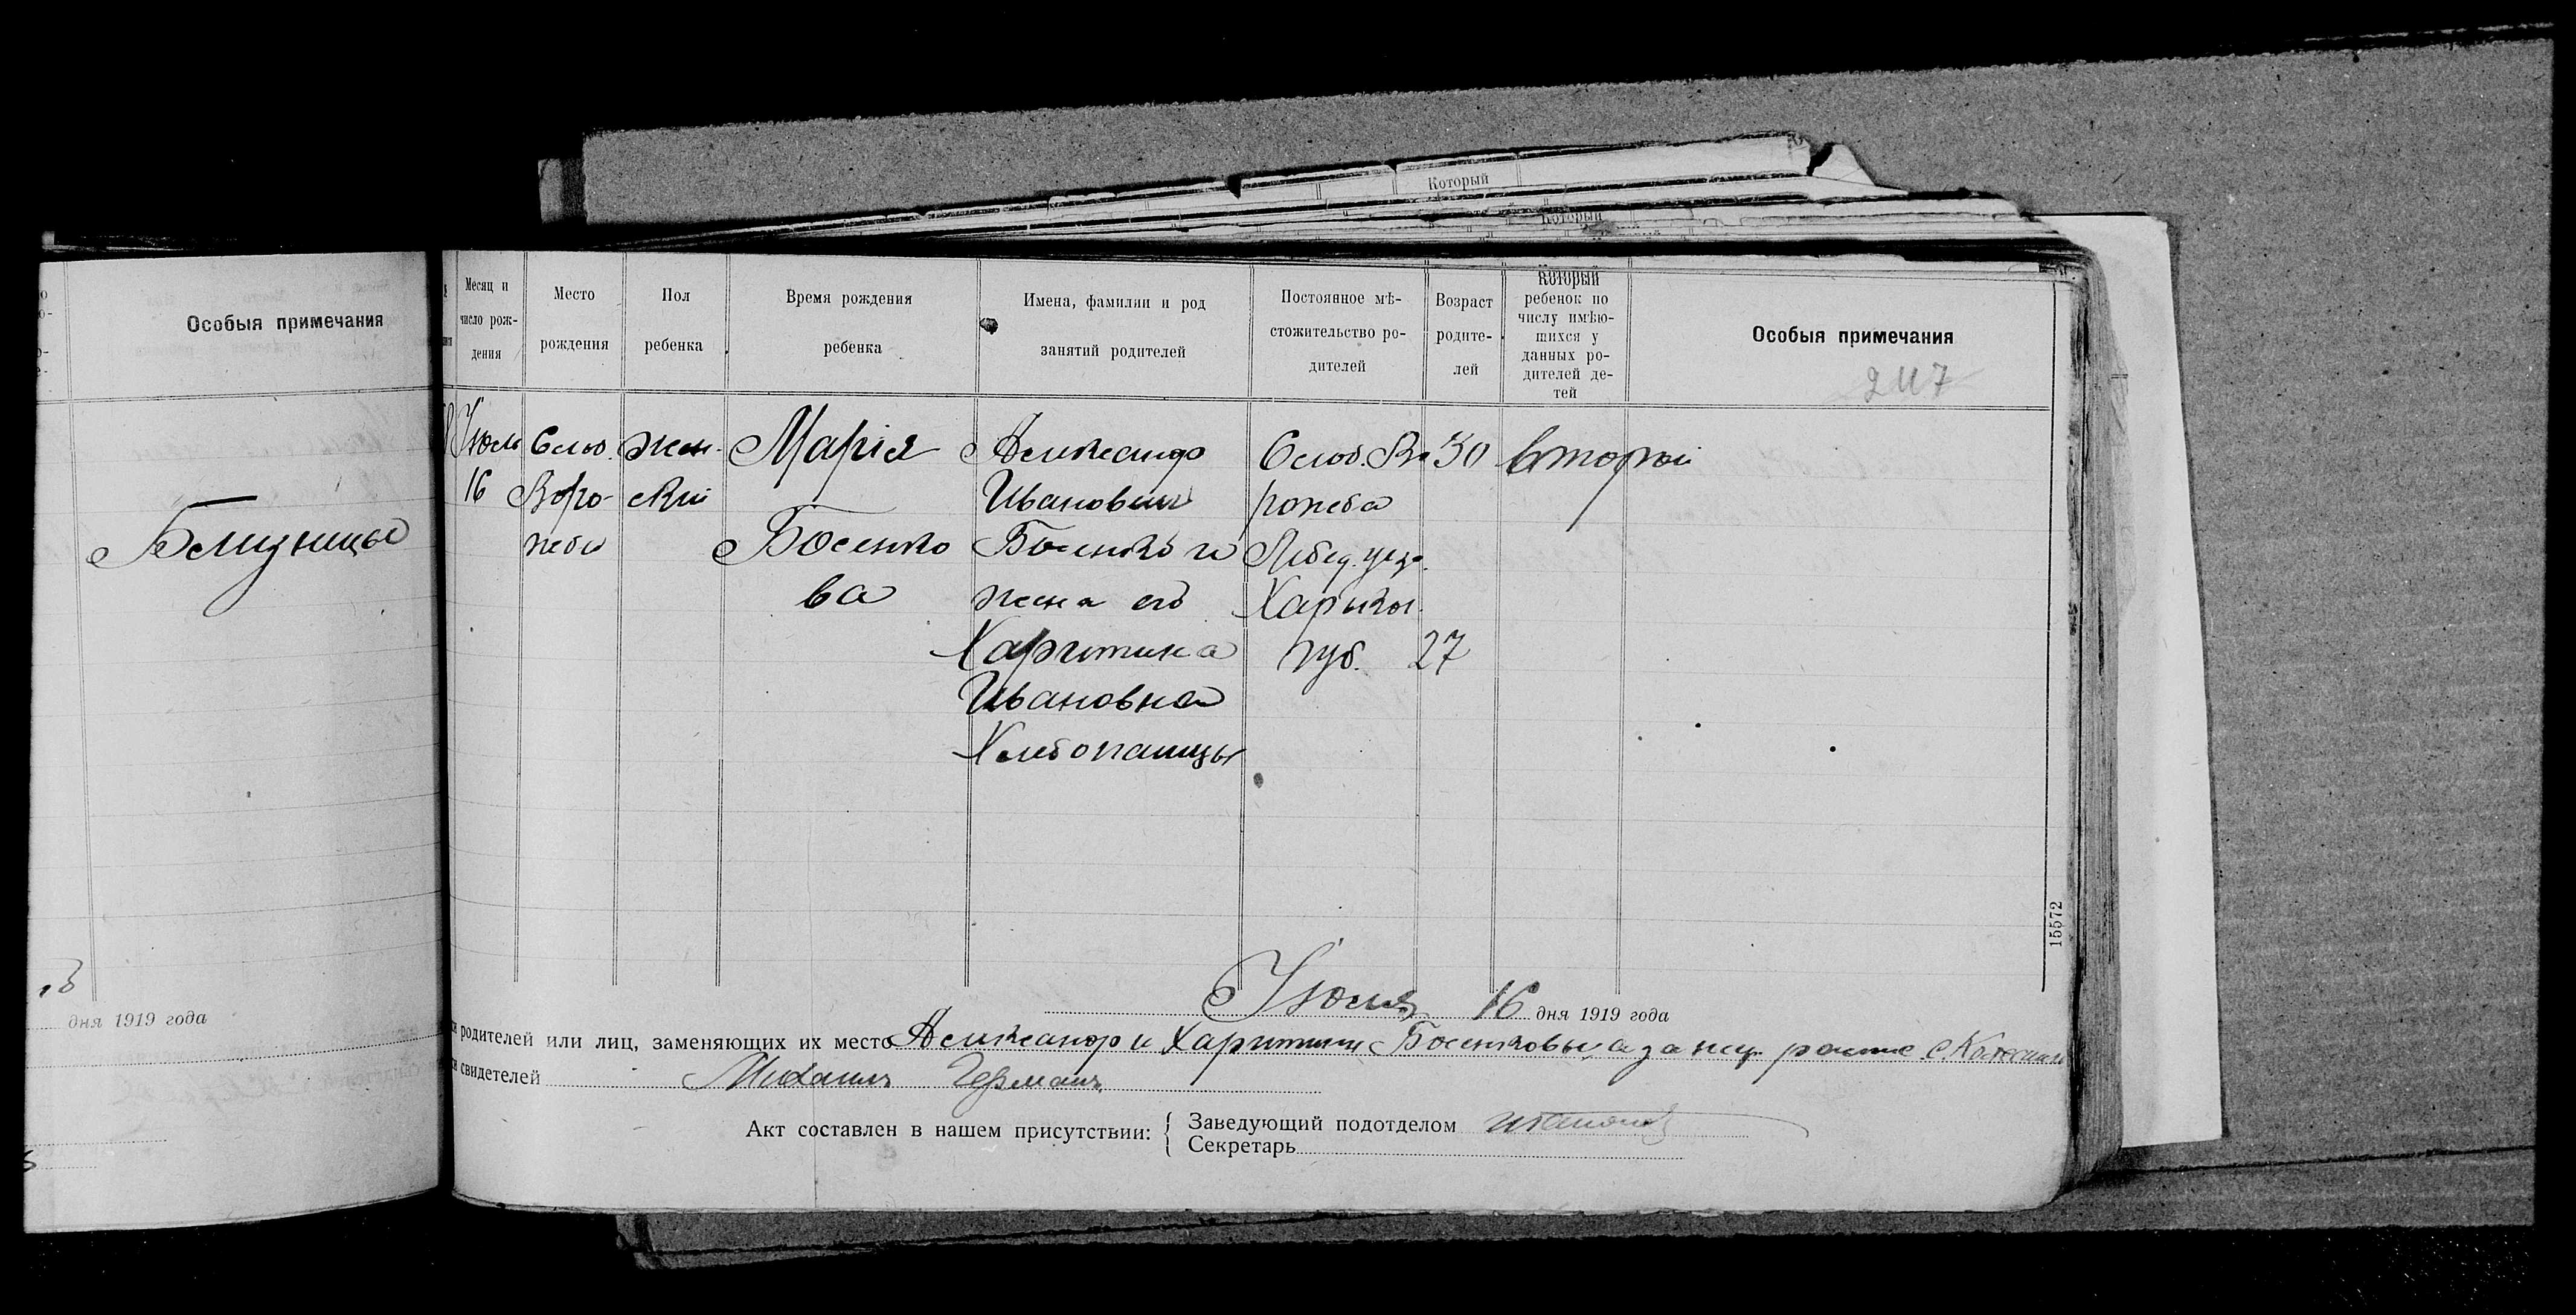 Который
Который
Особыя примечания
Близнецы
дня 1919 года
Месяц и число рождения
Место рождения
Пол ребенка
Время рождения ребенка
Имена, фамилии и род занятий родителей
Постоянное мѣстожительство родителей
Возраст родителей
Который ребенок по числу имѣющихся у данных родителей детей
Особыя примечания
247
Июль 16
Слоб. Ворожба
женский
Марія
Босенко
ва
Александр
Иванович
Босенко и
жена его
Харитина
Ивановна
Хлебопашцы
Слоб. Во
рожба
Лебед. уез.
Харьков.
губ.
30
27
второй
15572
Июля 16 дня 1919 года
родителей или лиц, заменяющих их место Александр и Харитина Босенковы а за негр.
свидетелей Михаил Герман
Акт составлен в нашем присутствии:
Заведующий подотделом
Секретарь